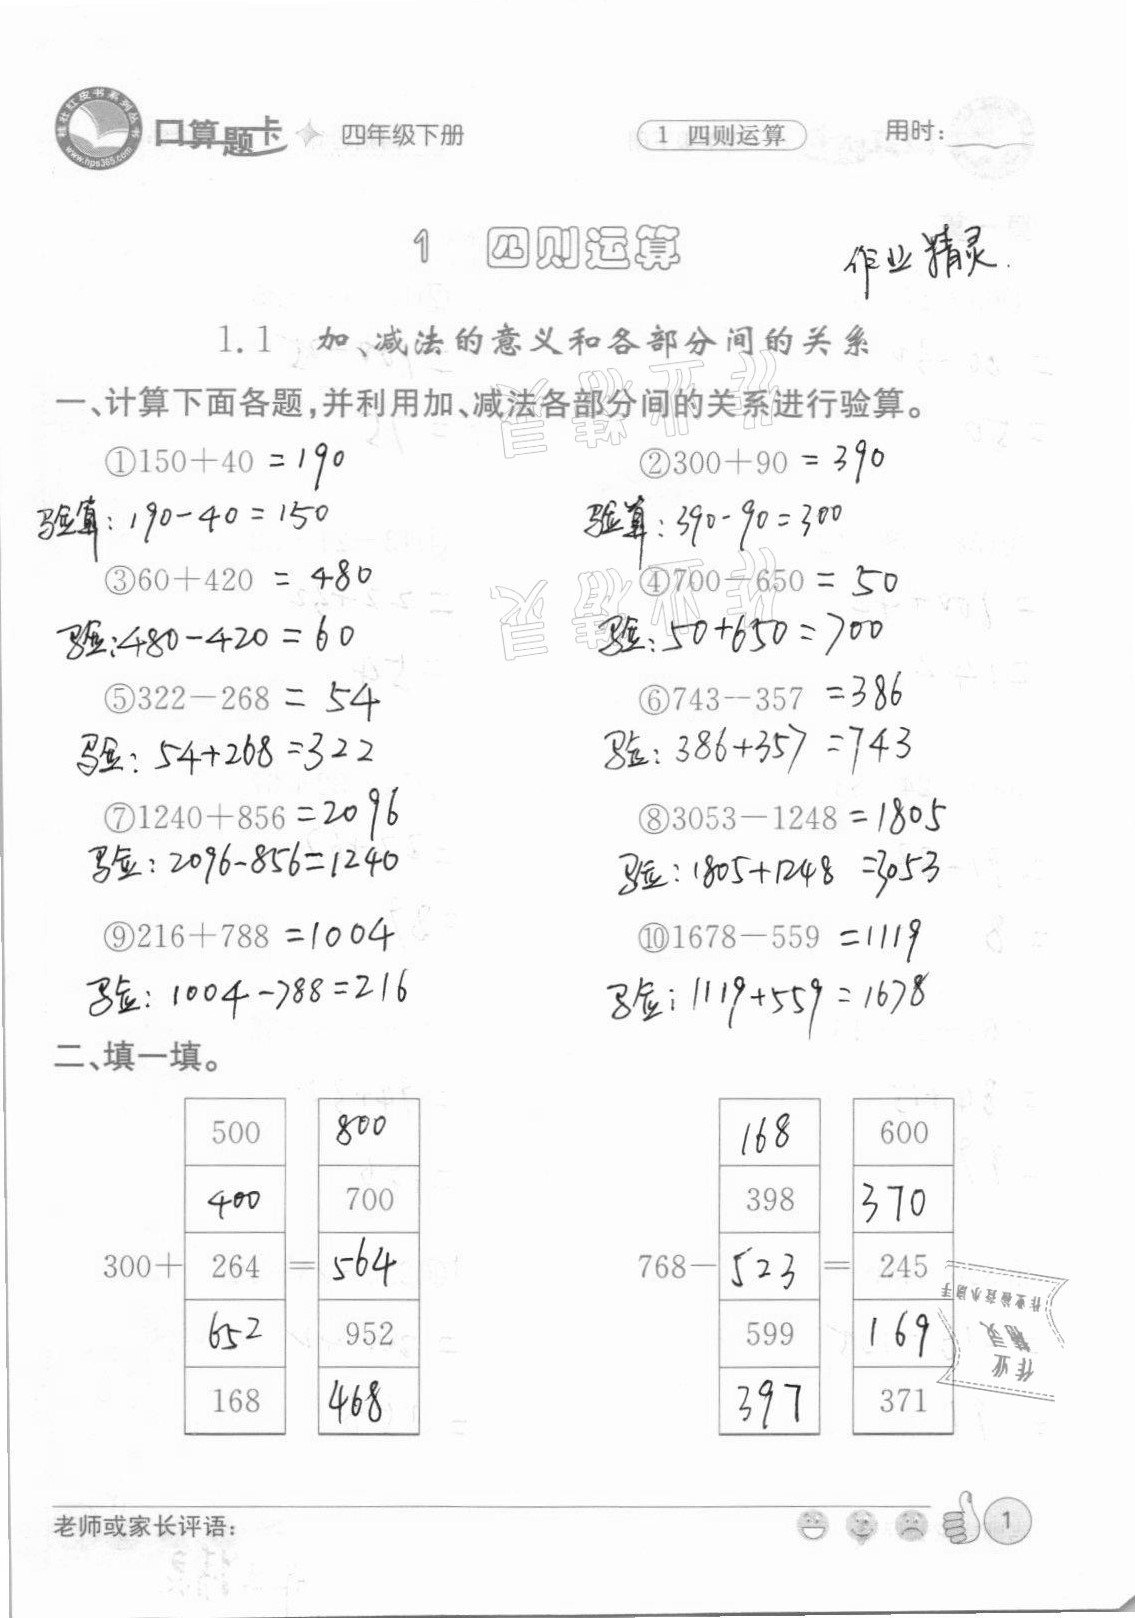 桃社红皮书系列丛书
www.hps365.com
口算题卡 四年级下册 1 四则运算 用时:
1 四则运算
作业精灵.
1.1 加、减法的意义和各部分间的关系
一、计算下面各题,并利用加、减法各部分间的关系进行验算。
①150+40 =190 ②300+90 = 390
验算: 190-40=150 验算: 390-90=300
③60+420 = 480 ④700-650 = 50
验: 480-420=60 验: 50+650=700
⑤322-268 = 54 ⑥743-357 =386
验: 54+268=322 验: 386+357=743
⑦1240+856=2096 ⑧3053-1248=1805
验: 2096-856=1240 验: 1805+1248 =3053
⑨216+788 =1004 ⑩1678-559 =1119
验: 1004-788=216 验: 1119+559=1678
二、填一填。
500 800 168 600
400 700 398 370
300+ 264 = 564 768- 523 = 245
652 952 599 169
168 468 397 371
作业精灵
作业精灵
作业检查小助手
精灵
作业
老师或家长评语: 1